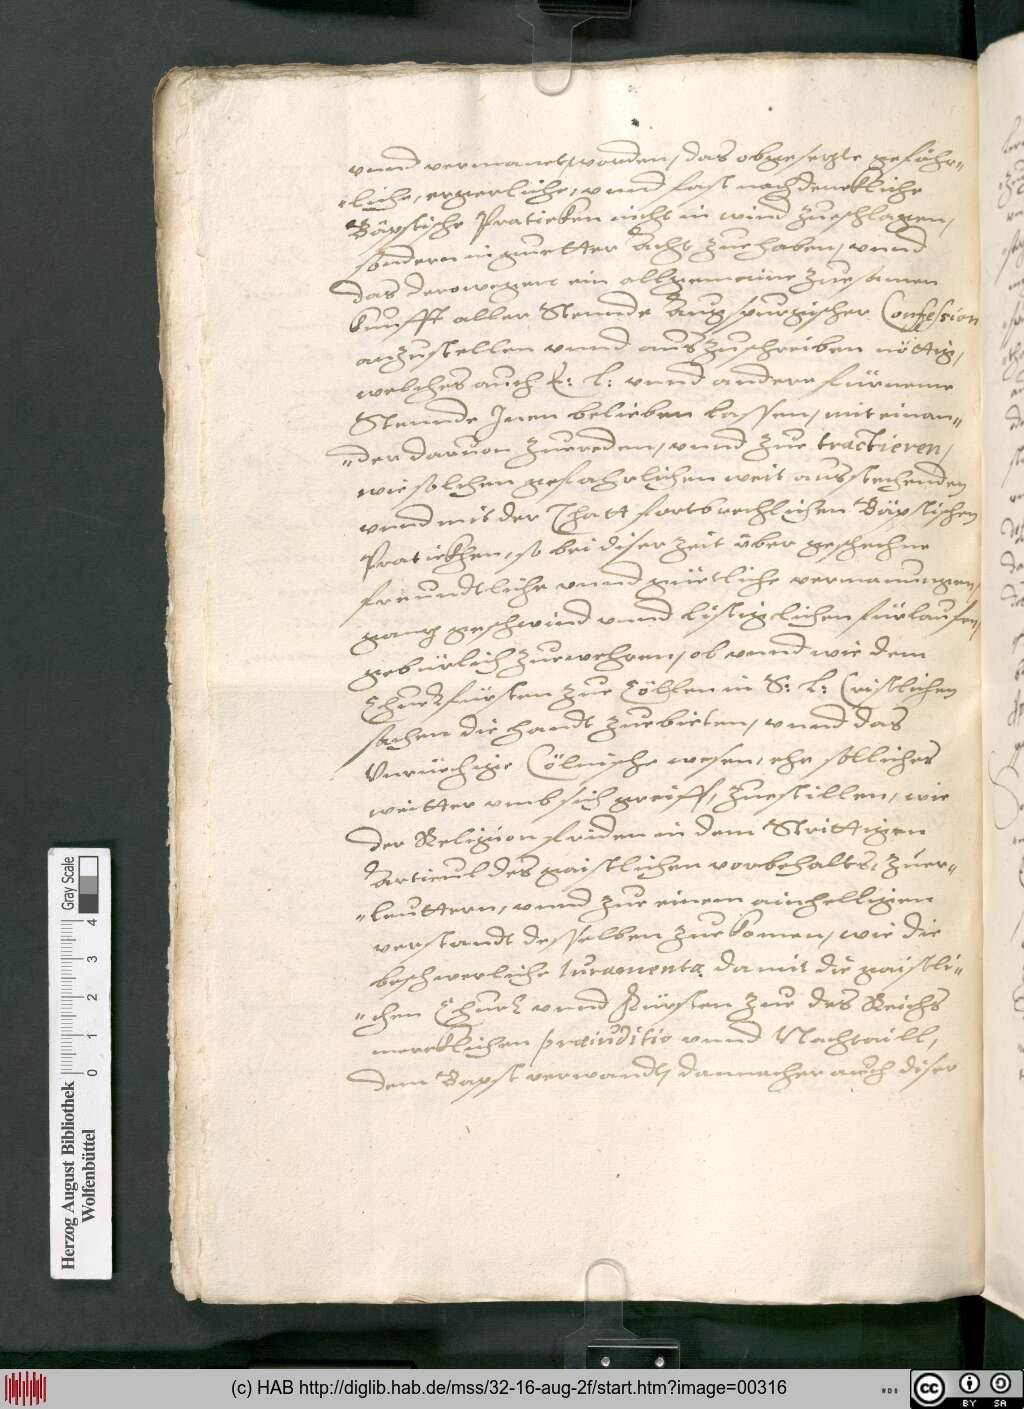 vnnd vermanet worden, das obgesetzte gefähr-
liche, ergerliche, vnnd fast nachdenckliche
Bäpstische Praticken nicht in wind zueschlagen,
sondern in guetter Acht zuehaben, vnnd
das derowegen ein allgemeine zuesamen
kunfft aller Stennde Augspurgischer Confession
anzustellen vnnd auszuschreiben nöttig,
welches auch E: L: vnnd andere fürneme
Stennde Inen belieben lassen, mit einan-
der daruon zuereden, vnnd zue tractieren,
wie solchen gefahrlichen weit aussehenden
vnnd mit der Thatt fortbrechlichen Bäpstischen
Pratickhen, so bei diser zeit über geschechne
freundtliche vnnd güetliche vermanungen,
gantz geschwind vnnd listigclichen fürlaufen,
gebürlich zuewehren, ob vnnd wie dem
Churfürsten zue Cölln in S: L: Cristlichen
sachen die handt zuebieten, vnnd das
Vnrüechige Cölnische wesen, ehe solliches
weitter vmb sich greiff, zuestillen, wie
der Religion friden in dem Strittigen
Articul des gaistlichen vorbehalts, zuer-
leuttern, vnnd zue einem ainhelligen
verstandt desselben zue komen, wie die
beschwerliche Iuramenta, damit die gaistli-
chen Chur vnnd Fürsten zue des Reichs
mercklichen præiuditio vnnd Nachtaill,
dem Bapst verwandt, dannacher auch diser
Herzog August Bibliothek
Wolfenbüttel
0 1 2 3 4
Gray Scale
(c) HAB http://diglib.hab.de/mss/32-16-aug-2f/start.htm?image=00316
WDB
cc BY SA